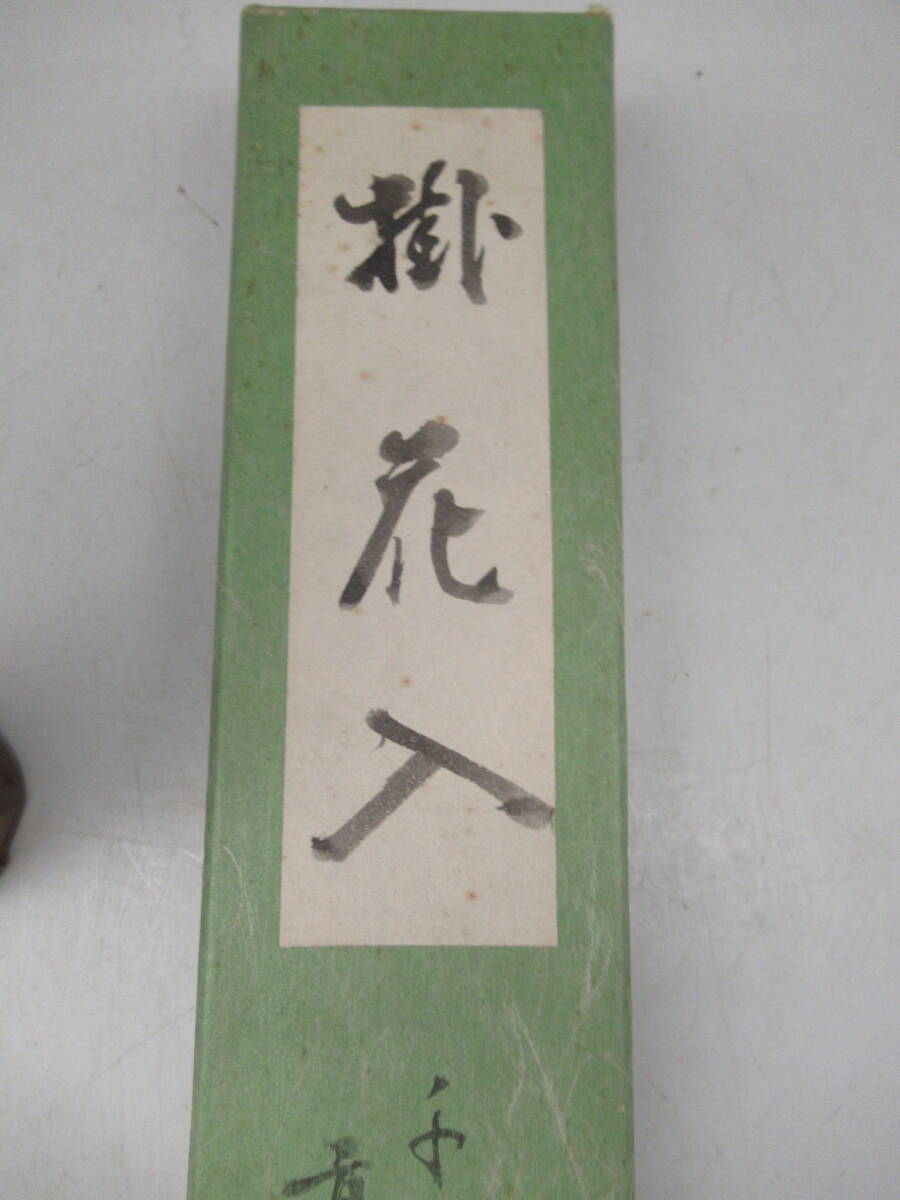 掛花入